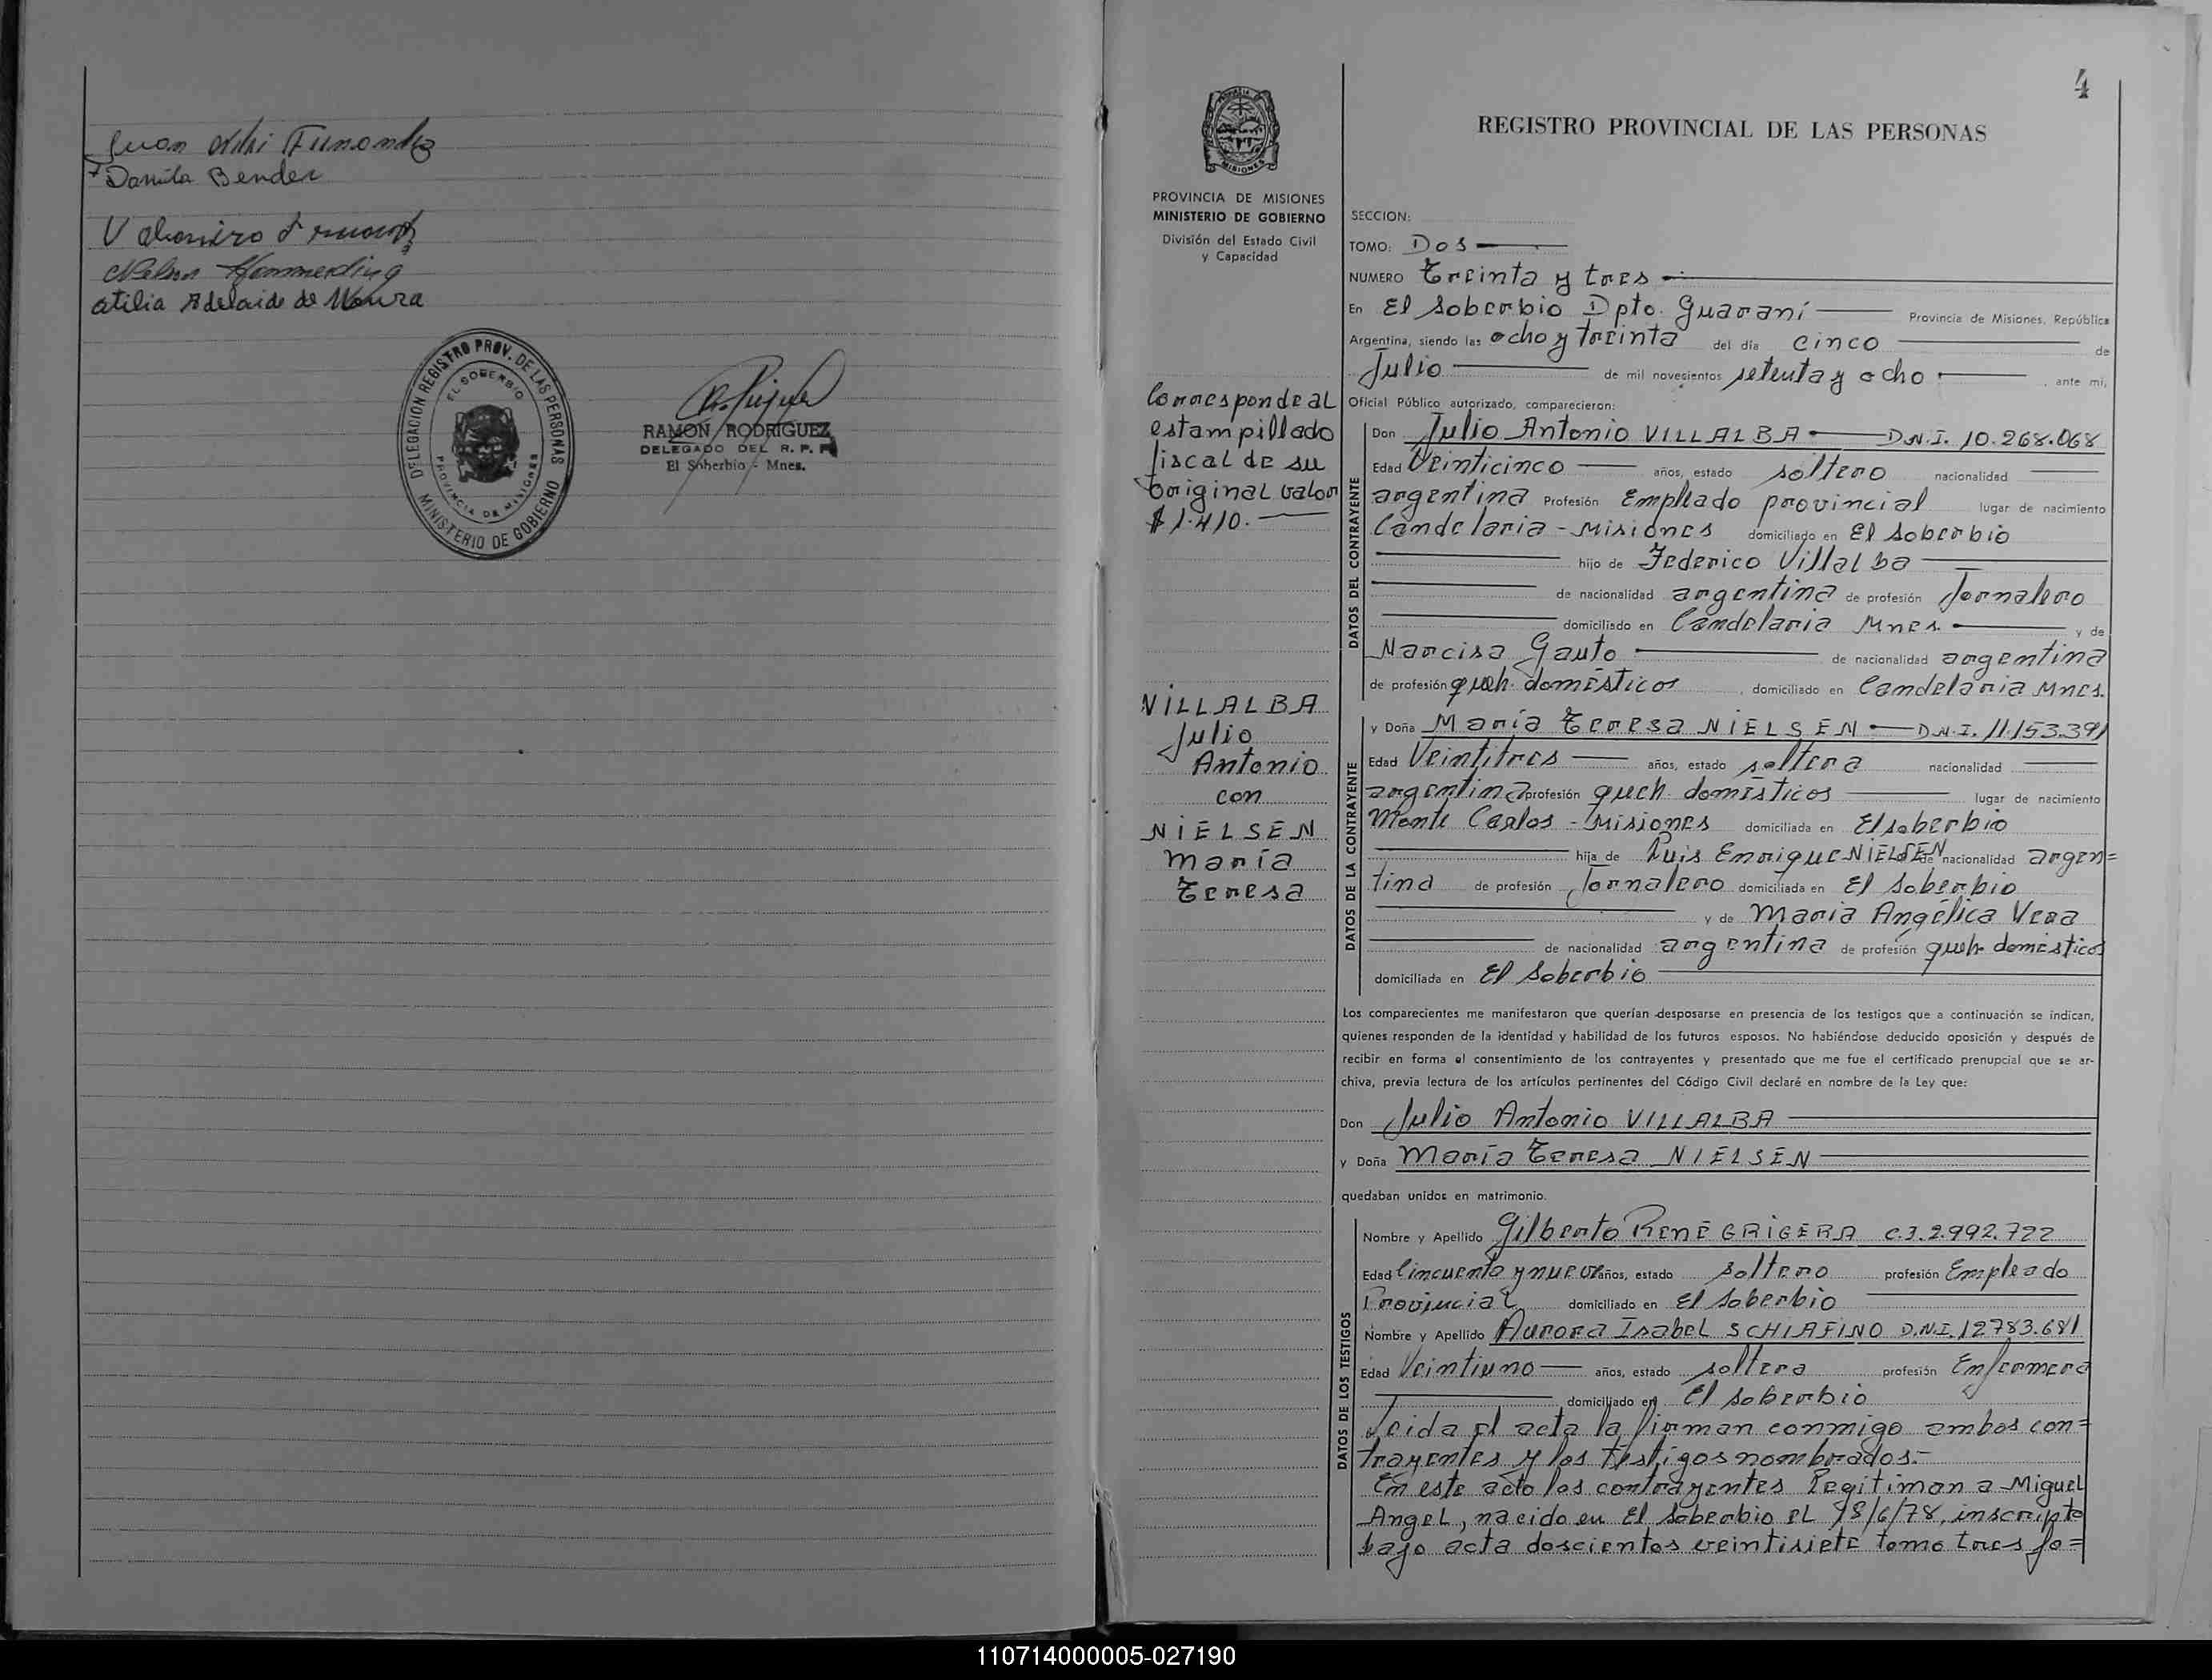 Danila Bender
Nelson Hommerding
Atilia Adelaide de Moura
DELEGACION REGISTRO PROV. DE LAS PERSONAS
EL SOBERBIO
PROVINCIA DE MISIONES
MINISTERIO DE GOBIERNO
RAMON RODRIGUEZ
DELEGADO DEL R. P. P.
El Soberbio - Mnes.
4
MISIONES
PROVINCIA DE MISIONES
MINISTERIO DE GOBIERNO
División del Estado Civil
y Capacidad
Corresponde al
estampillado
fiscal de su
original valor
$ 1.410.
VILLALBA
Julio
Antonio
con
NIELSEN
María
Teresa
REGISTRO PROVINCIAL DE LAS PERSONAS
SECCION:
TOMO: Dos
NUMERO Treinta y tres
En El Soberbio Dpto. Guaraní Provincia de Misiones, República
Argentina, siendo las ocho y treinta del día cinco de
Julio de mil novecientos setenta y ocho, ante mi,
Oficial Público autorizado, comparecieron:
DATOS DEL CONTRAYENTE
Don Julio Antonio VILLALBA D.N.I. 10.268.068
Edad Veinticinco años, estado soltero nacionalidad
argentina Profesión Empleado provincial lugar de nacimiento
Candelaria - Misiones domiciliado en El Soberbio
hijo de Federico Villalba
de nacionalidad argentina de profesión Jornalero
domiciliado en Candelaria Mnes. y de
Narcisa Gauto de nacionalidad argentina
de profesión queh. domésticos, domiciliado en Candelaria Mnes.
DATOS DE LA CONTRAYENTE
y Doña María Teresa NIELSEN D.N.I. 11.153.391
Edad Veintitres años, estado soltera nacionalidad
argentina profesión queh. domésticos lugar de nacimiento
Monte Carlos - Misiones domiciliada en El soberbio
hija de Luis Enrique NIELSEN de nacionalidad argen=
tina de profesión Jornalero domiciliada en El Soberbio
y de Maria Angélica Vera
de nacionalidad argentina de profesión queh. domésticos
domiciliada en El Soberbio
Los comparecientes me manifestaron que querían desposarse en presencia de los testigos que a continuación se indican,
quienes responden de la identidad y habilidad de los futuros esposos. No habiéndose deducido oposición y después de
recibir en forma el consentimiento de los contrayentes y presentado que me fue el certificado prenupcial que se ar-
chiva, previa lectura de los artículos pertinentes del Código Civil declaré en nombre de la Ley que:
Don Julio Antonio VILLALBA
y Doña María Teresa NIELSEN
quedaban unidos en matrimonio.
DATOS DE LOS TESTIGOS
Nombre y Apellido Gilberto René GRIGERA C.I. 2.992.722
Edad Cincuenta y nueve años, estado soltero profesión Empleado
Provincial domiciliado en El Soberbio
Nombre y Apellido Aurora Isabel SCHIAFINO D.N.I. 12783.681
Edad Veintiuno años, estado soltera profesión Enfermera
domiciliado en El soberbio
Leida el acta la firman conmigo ambos con=
trayentes y los testigos nombrados.-
En este acto los contrayentes legitiman a Miguel
Angel, nacido en El Soberbio el 18/6/78, inscripto
bajo acta doscientos veintisiete tomo tres fo=
110714000005-027190